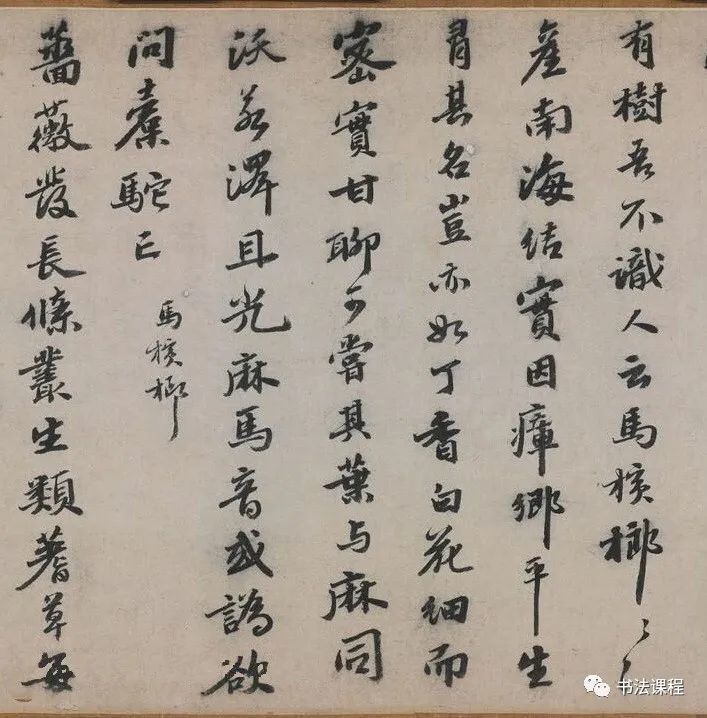 有樹吾不識人云馬梹榔〻
産南海結實因瘴鄉平生
冐其名豈亦如丁香白花細而
密實甘聊可嘗其葉与麻同
沃若澤且光麻馬音或譌欲
問橐駝亡
馬梹榔
薔薇發長條叢生類蓍草每
书法课程